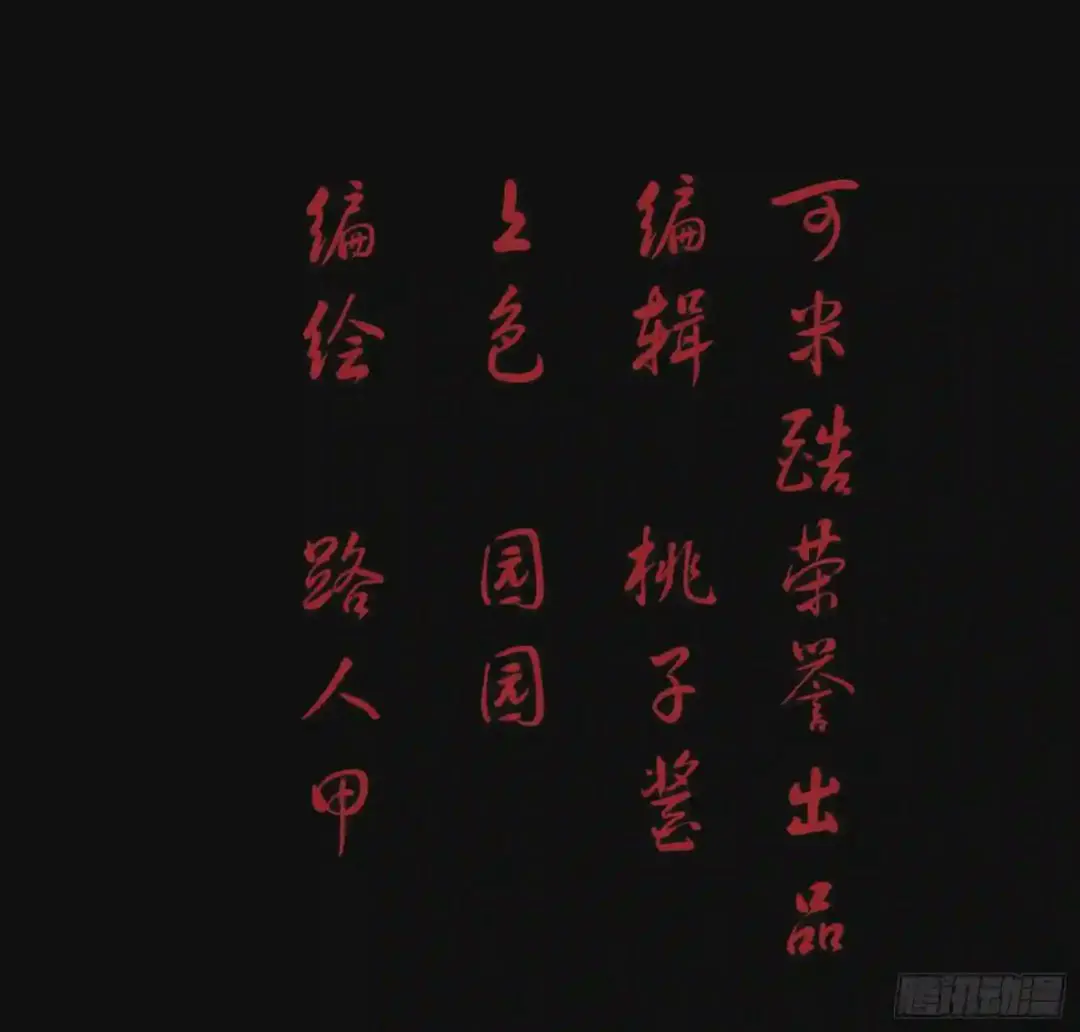 可米酷荣誉出品
编辑 桃子酱
上色 园园
编绘 路人甲
腾讯动漫